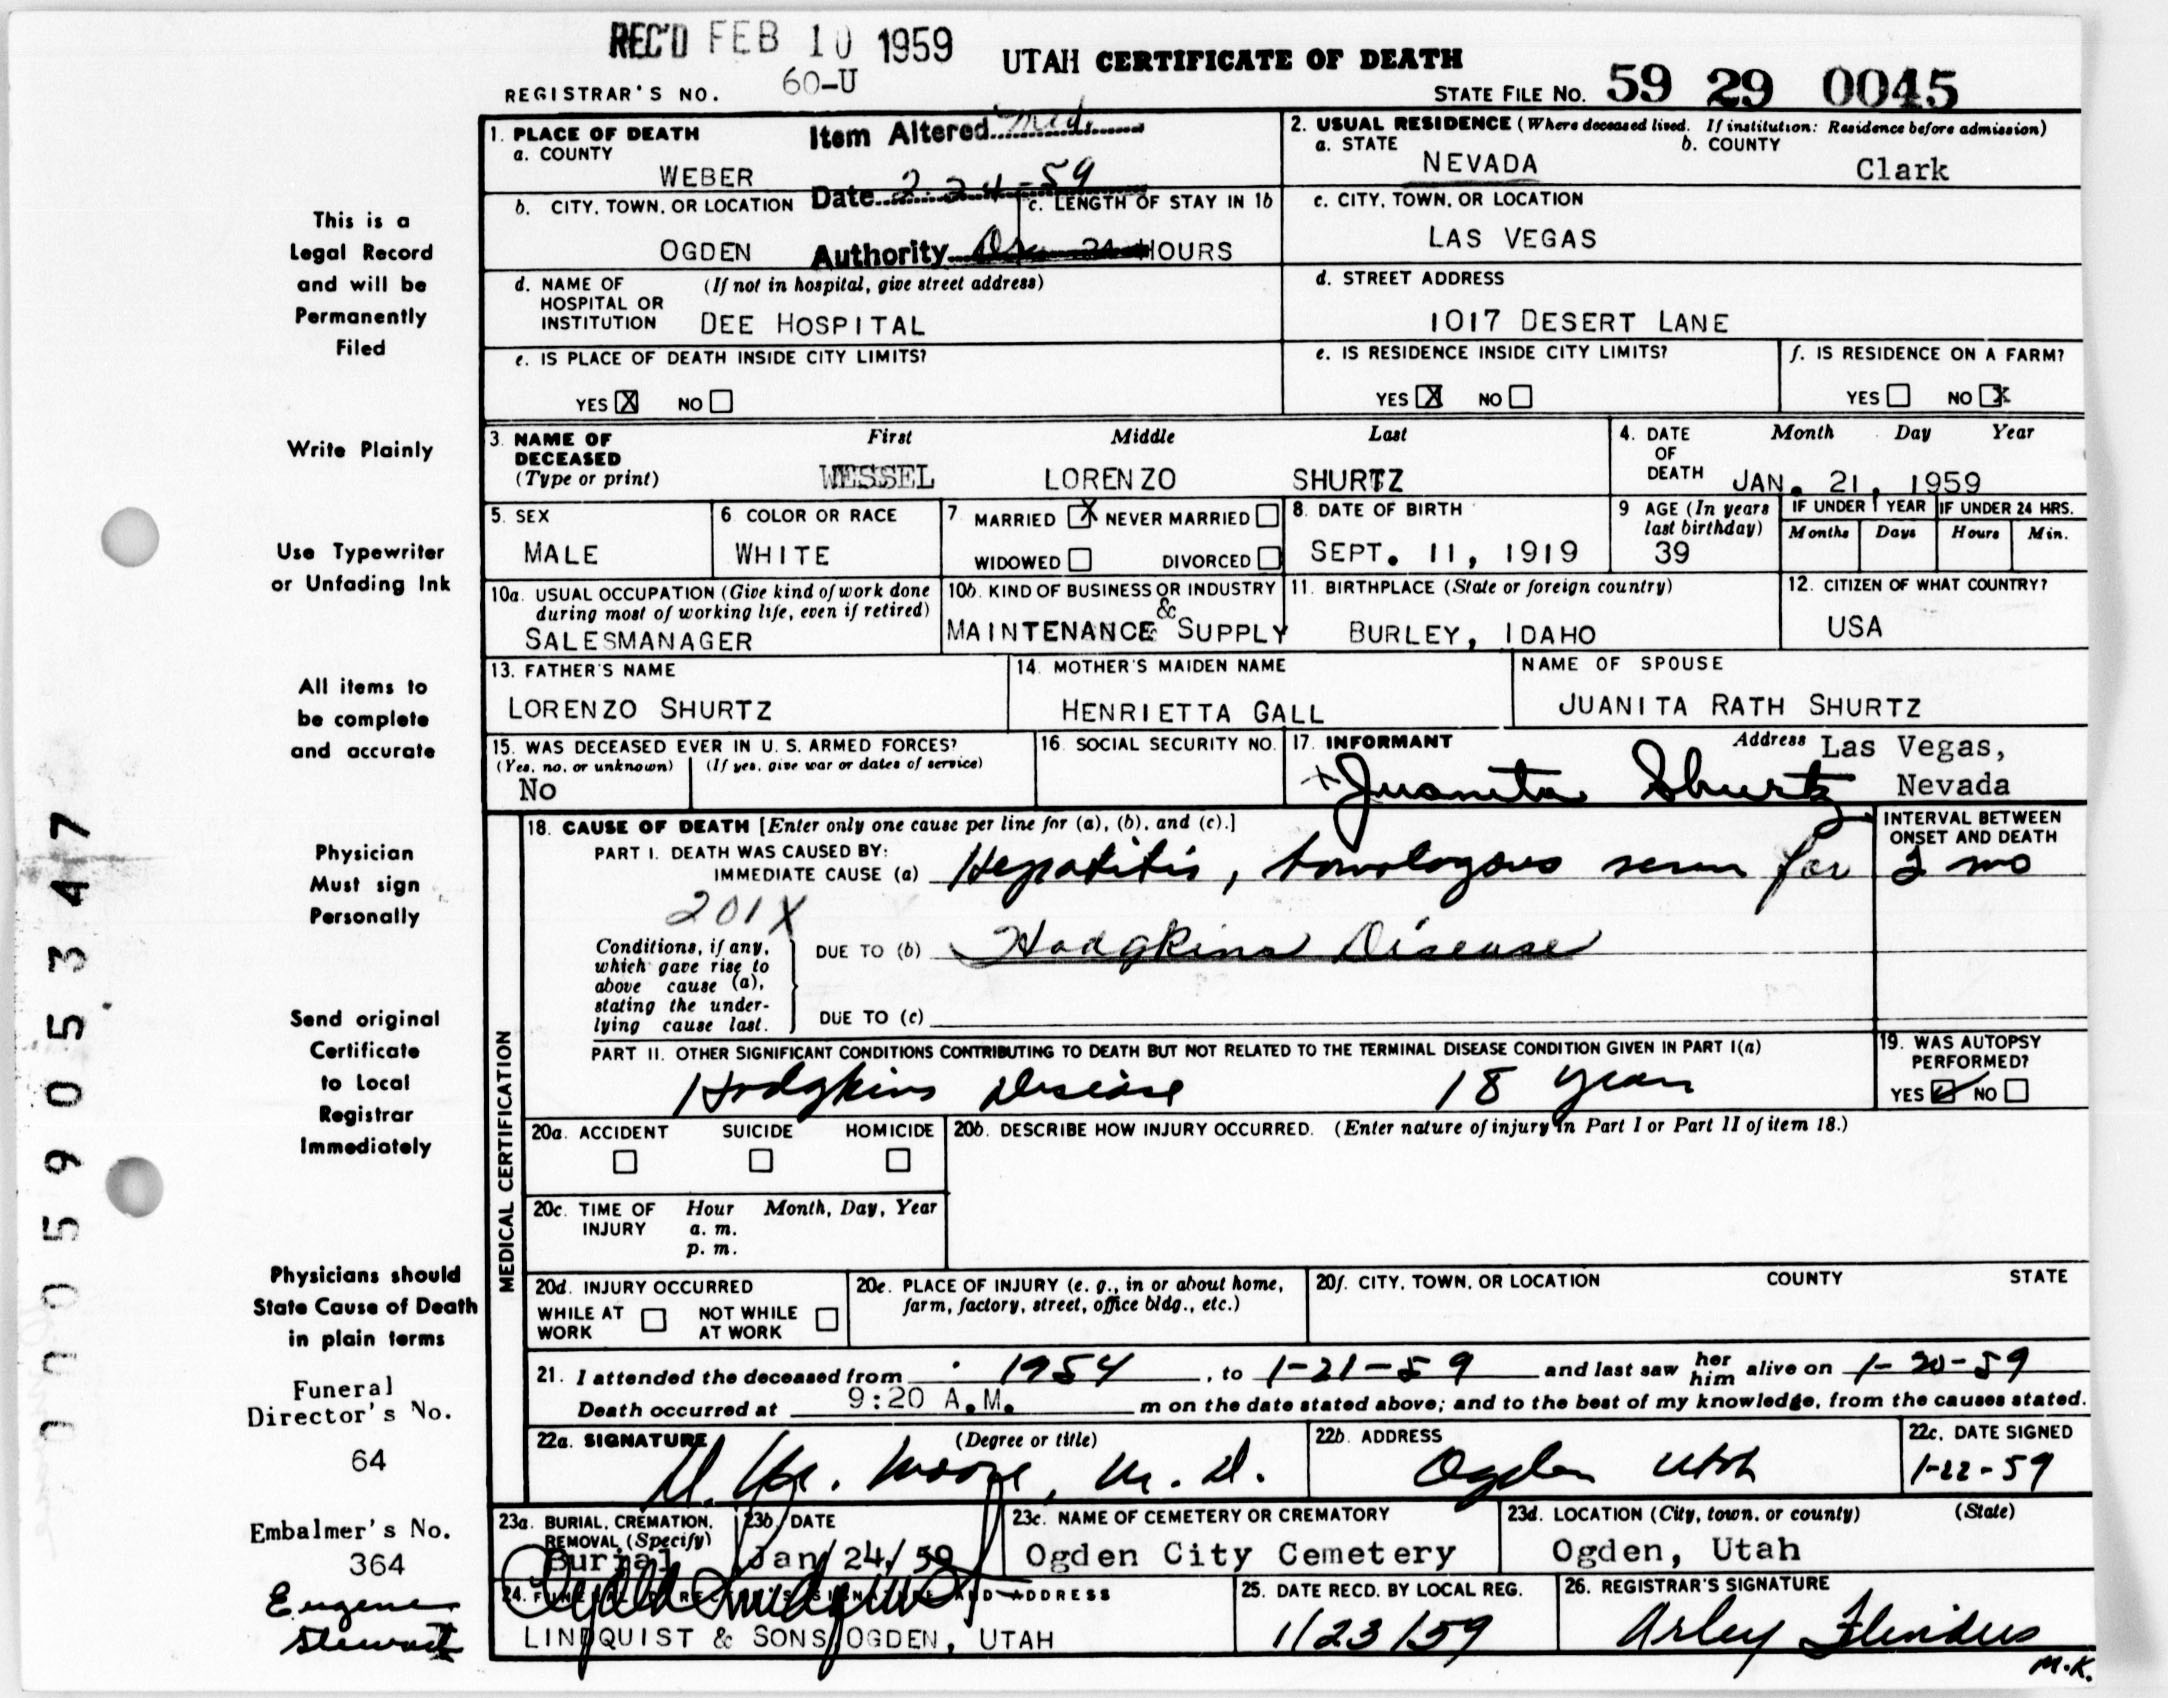 REC'D FEB 10 1959
UTAH CERTIFICATE OF DEATH
REGISTRAR'S NO. 60-U
STATE FILE NO. 59 29 0045
1. PLACE OF DEATH
a. COUNTY
WEBER
Item Altered Med.
Date 2-24-59
Authority
2. USUAL RESIDENCE (Where deceased lived. If institution: Residence before admission)
a. STATE NEVADA
b. COUNTY Clark
b. CITY, TOWN, OR LOCATION
OGDEN
c. LENGTH OF STAY IN 1b
HOURS
c. CITY, TOWN, OR LOCATION
LAS VEGAS
d. NAME OF HOSPITAL OR INSTITUTION (If not in hospital, give street address)
DEE HOSPITAL
d. STREET ADDRESS
1017 DESERT LANE
e. IS PLACE OF DEATH INSIDE CITY LIMITS?
YES X NO
e. IS RESIDENCE INSIDE CITY LIMITS?
YES X NO
f. IS RESIDENCE ON A FARM?
YES NO X
3. NAME OF DECEASED (Type or print)
First Middle Last
WESSEL LORENZO SHURTZ
4. DATE OF DEATH Month Day Year
JAN. 21, 1959
5. SEX
MALE
6. COLOR OR RACE
WHITE
7. MARRIED X NEVER MARRIED
WIDOWED DIVORCED
8. DATE OF BIRTH
SEPT. 11, 1919
9. AGE (In years last birthday)
39
IF UNDER 1 YEAR
Months Days
IF UNDER 24 HRS.
Hours Min.
10a. USUAL OCCUPATION (Give kind of work done during most of working life, even if retired)
SALESMANAGER
10b. KIND OF BUSINESS OR INDUSTRY
MAINTENANCE & SUPPLY
11. BIRTHPLACE (State or foreign country)
BURLEY, IDAHO
12. CITIZEN OF WHAT COUNTRY?
USA
13. FATHER'S NAME
LORENZO SHURTZ
14. MOTHER'S MAIDEN NAME
HENRIETTA GALL
NAME OF SPOUSE
JUANITA RATH SHURTZ
15. WAS DECEASED EVER IN U. S. ARMED FORCES?
(Yes, no, or unknown) (If yes, give war or dates of service)
No
16. SOCIAL SECURITY NO.
17. INFORMANT Address
x Juanita Shurtz
Las Vegas,
Nevada
MEDICAL CERTIFICATION
18. CAUSE OF DEATH [Enter only one cause per line for (a), (b), and (c).]
INTERVAL BETWEEN ONSET AND DEATH
PART I. DEATH WAS CAUSED BY:
IMMEDIATE CAUSE (a) Hepatitis, homologous serum for 2 mo
201X
Conditions, if any, which gave rise to above cause (a), stating the underlying cause last.
DUE TO (b) Hodgkins Disease
DUE TO (c)
PART II. OTHER SIGNIFICANT CONDITIONS CONTRIBUTING TO DEATH BUT NOT RELATED TO THE TERMINAL DISEASE CONDITION GIVEN IN PART I(a)
Hodgkins Disease 18 years
19. WAS AUTOPSY PERFORMED?
YES NO
20a. ACCIDENT SUICIDE HOMICIDE
20b. DESCRIBE HOW INJURY OCCURRED. (Enter nature of injury in Part I or Part II of item 18.)
20c. TIME OF INJURY Hour Month, Day, Year
a. m.
p. m.
20d. INJURY OCCURRED
WHILE AT WORK NOT WHILE AT WORK
20e. PLACE OF INJURY (e. g., in or about home, farm, factory, street, office bldg., etc.)
20f. CITY, TOWN, OR LOCATION COUNTY STATE
21. I attended the deceased from 1954, to 1-21-59 and last saw her him alive on 1-20-59
Death occurred at 9:20 A.M. m on the date stated above; and to the best of my knowledge, from the causes stated.
22a. SIGNATURE (Degree or title)
Moore, M.D.
22b. ADDRESS
Ogden Utah
22c. DATE SIGNED
1-22-59
23a. BURIAL, CREMATION, REMOVAL (Specify)
Burial
23b. DATE
Jan/24/59
23c. NAME OF CEMETERY OR CREMATORY
Ogden City Cemetery
23d. LOCATION (City, town, or county) (State)
Ogden, Utah
24. ADDRESS
LINDQUIST & SONS, OGDEN, UTAH
25. DATE RECD. BY LOCAL REG.
1/23/59
26. REGISTRAR'S SIGNATURE
Arley Flinders
M.K.
This is a
Legal Record
and will be
Permanently
Filed
Write Plainly
Use Typewriter
or Unfading Ink
All items to
be complete
and accurate
Physician
Must sign
Personally
Send original
Certificate
to Local
Registrar
Immediately
Physicians should
State Cause of Death
in plain terms
Funeral
Director's No.
64
Embalmer's No.
364
Eugene
Stewart
0005905347